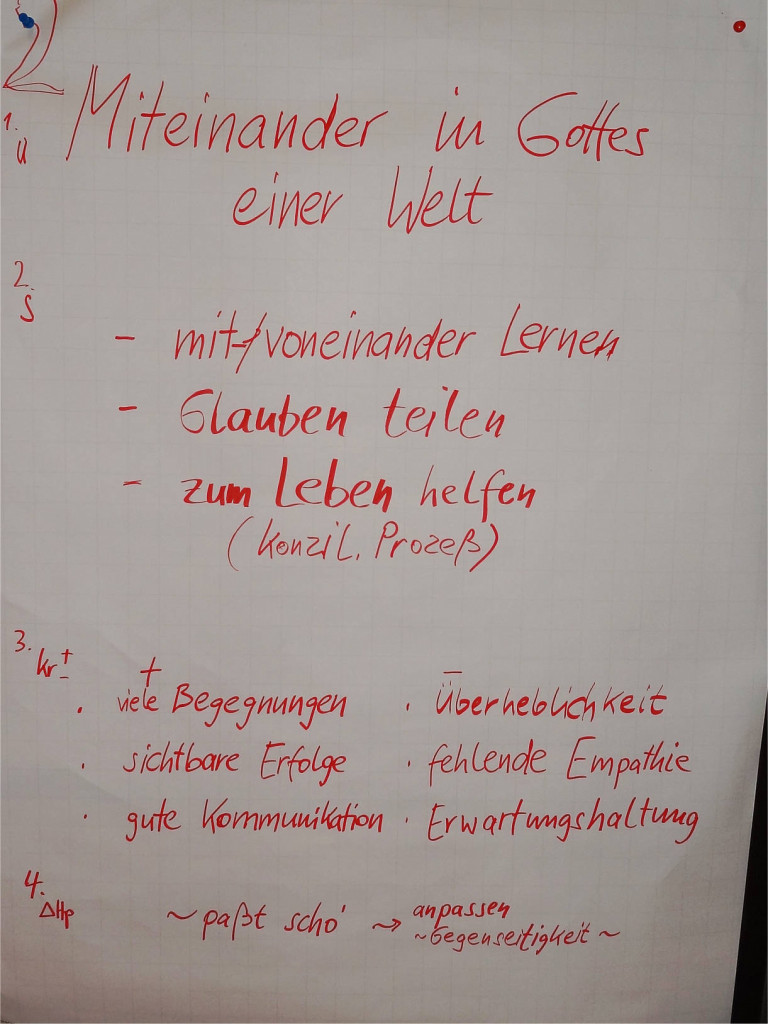 2
1. Ü Miteinander in Gottes
einer Welt
2. S
- mit-/voneinander Lernen
- Glauben teilen
- zum Leben helfen
(Konzil. Prozeß)
3. Kr +-
+ -
· viele Begegnungen · Überheblichkeit
· sichtbare Erfolge · fehlende Empathie
· gute Kommunikation · Erwartungshaltung
4. ΔHp
~ paßt scho' → anpassen
~ Gegenseitigkeit ~